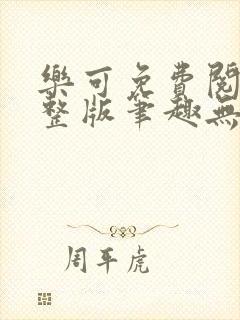 樂可免費閱
整版筆趣無
周平虎